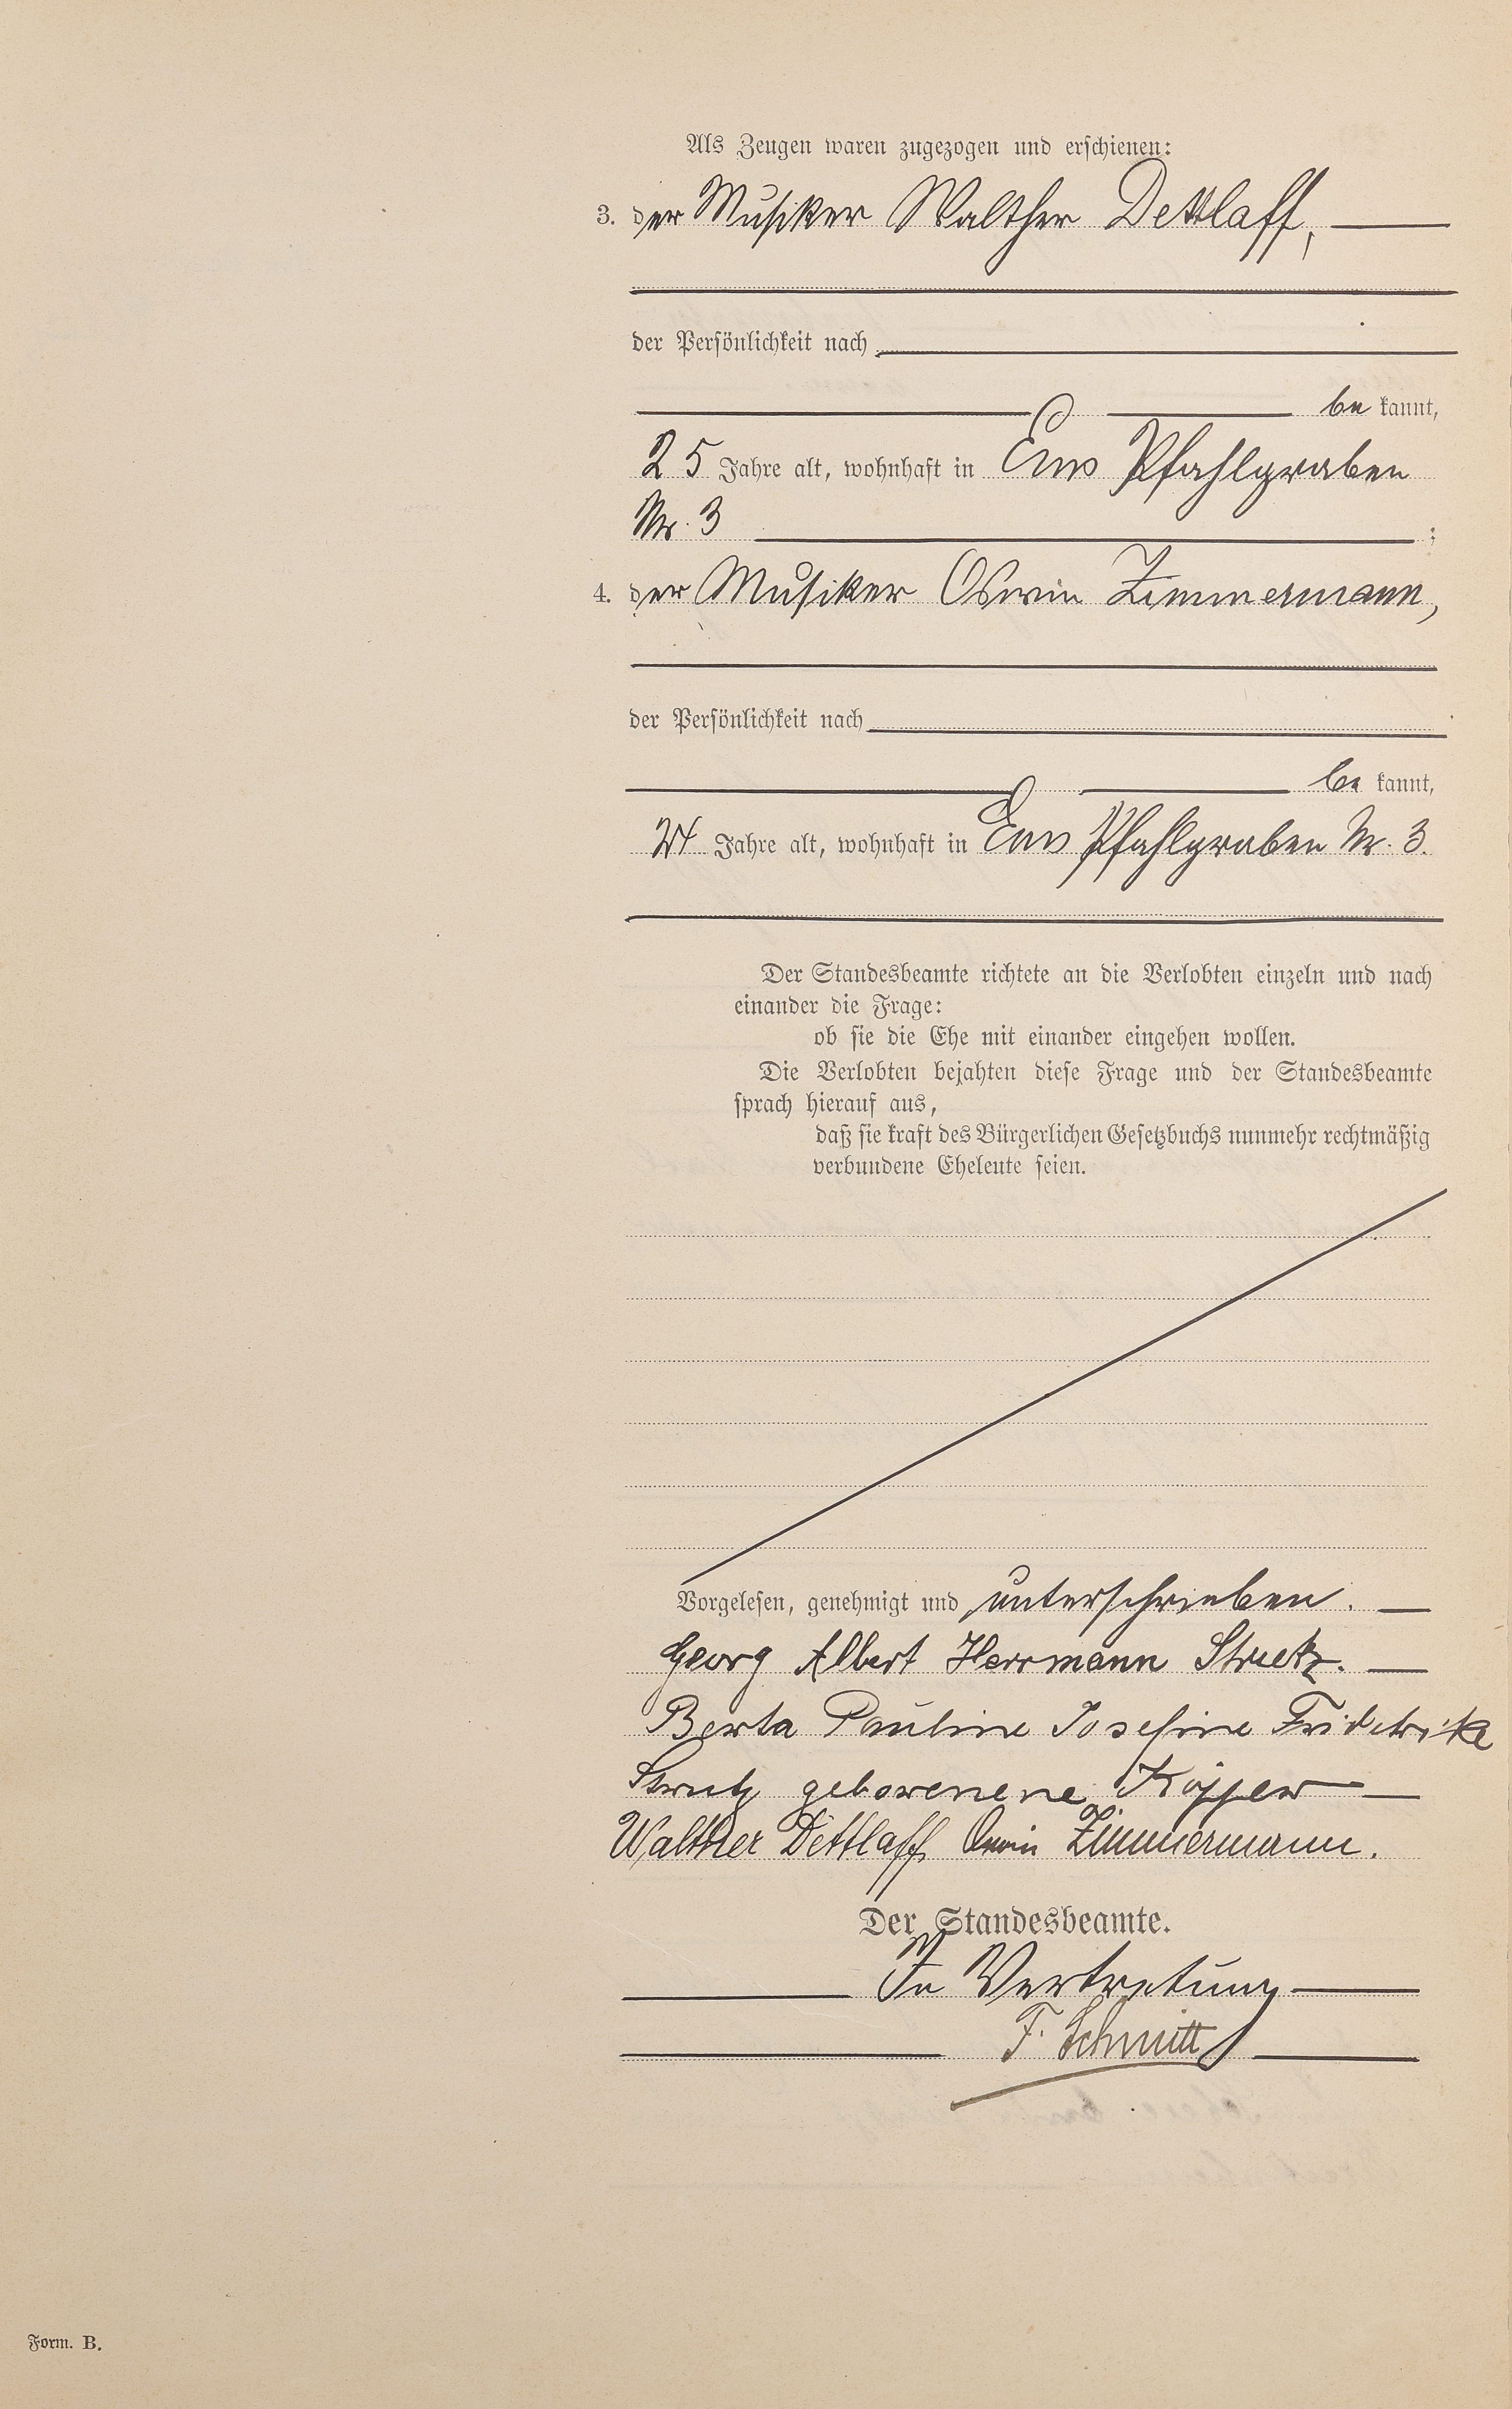 Als Zeugen waren zugezogen und erschienen:
3. der Musiker Walther Dettlaff,
der Persönlichkeit nach
be kannt,
25 Jahre alt, wohnhaft in Ems Pfahlgraben
Nr. 3 ;
4. der Musiker Oswin Zimmermann,
der Persönlichkeit nach
be kannt,
24 Jahre alt, wohnhaft in Ems Pfahlgraben Nr. 3.
Der Standesbeamte richtete an die Verlobten einzeln und nach
einander die Frage:
ob sie die Ehe mit einander eingehen wollen.
Die Verlobten bejahten diese Frage und der Standesbeamte
sprach hierauf aus,
daß sie kraft des Bürgerlichen Gesetzbuchs nunmehr rechtmäßig
verbundene Eheleute seien.
Vorgelesen, genehmigt und unterschrieben.
Georg Albert Herrmann
Berta Pauline Josefine Fridetrike
geborenene
Walther Dettlaff Oswin Zimmermann.
Der Standesbeamte.
In Vertretung
F. Schmitt
Form. B.